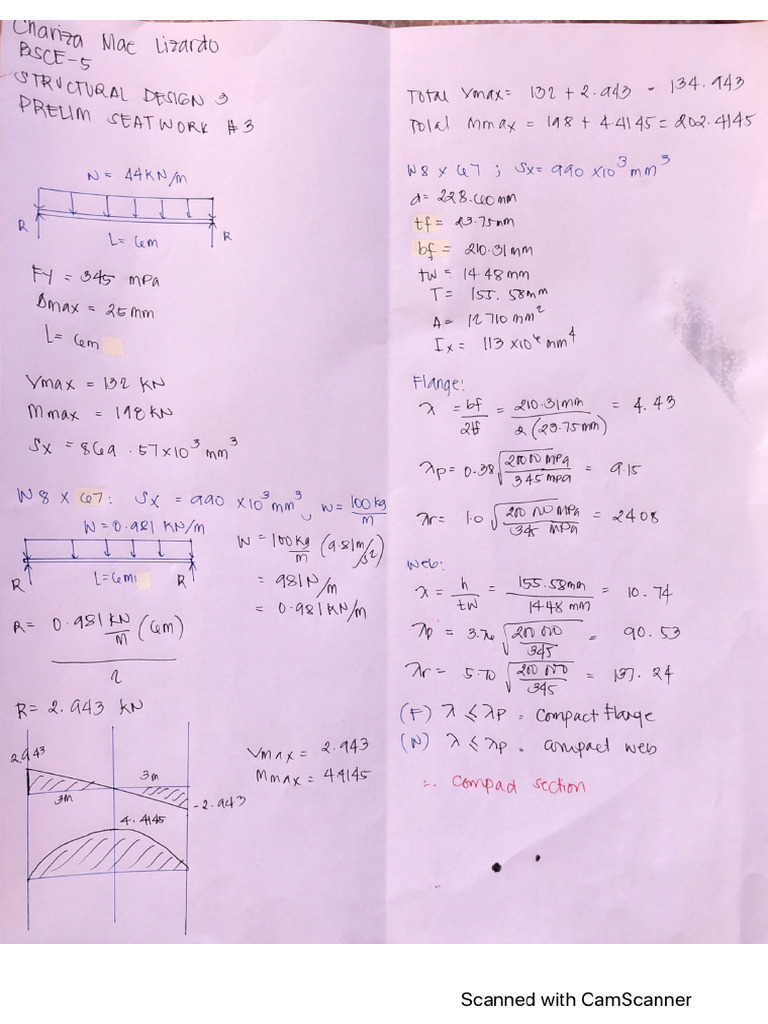 Chariza Mae Lizardo
BSCE-5
STRUCTURAL DESIGN 3
PRELIM SEATWORK #3
W = 44KN/m
R
R
L= 6m
FY = 345 mPa
Δmax = 25mm
L= 6m
Vmax = 132 KN
Mmax = 198KN
Sx = 869.57x10³ mm³
W8 x 67: Sx = 990 x10³mm³, W= 100kg/m
W=0.981 KN/m
R
L=6m
R
W = 100kg/m (9.81m/s²)
= 981N/m
= 0.981KN/m
R= 0.981KN/m (6m)
2
R= 2.943 KN
2.943
3m
3m
-2.943
4.4145
Vmax = 2.943
Mmax = 4.4145
Total Vmax= 132 + 2.943 = 134.943
Total Mmax = 198 + 4.4145 = 202.4145
W8 x 67 ; Sx= 990 x10³mm³
d= 228.60mm
tf= 23.75mm
bf= 210.31mm
tw= 14.48mm
T= 155.58mm
A= 12710mm²
Ix= 113 x10⁶mm⁴
Flange:
λ = bf/2tf = 210.31mm/2(23.75mm) = 4.43
λp= 0.38√200000mpa/345mpa = 9.15
λr= 1.0√200000mpa/345 MPa = 24.08
Web:
λ = h/tw = 155.58mm/14.48mm = 10.74
λp= 3.76√200000/345 = 90.53
λr= 5.70√200000/345 = 137.24
(F) λ ≤ λp = Compact Flange
(W) λ ≤ λp = compact web
∴ compact section
Scanned with CamScanner